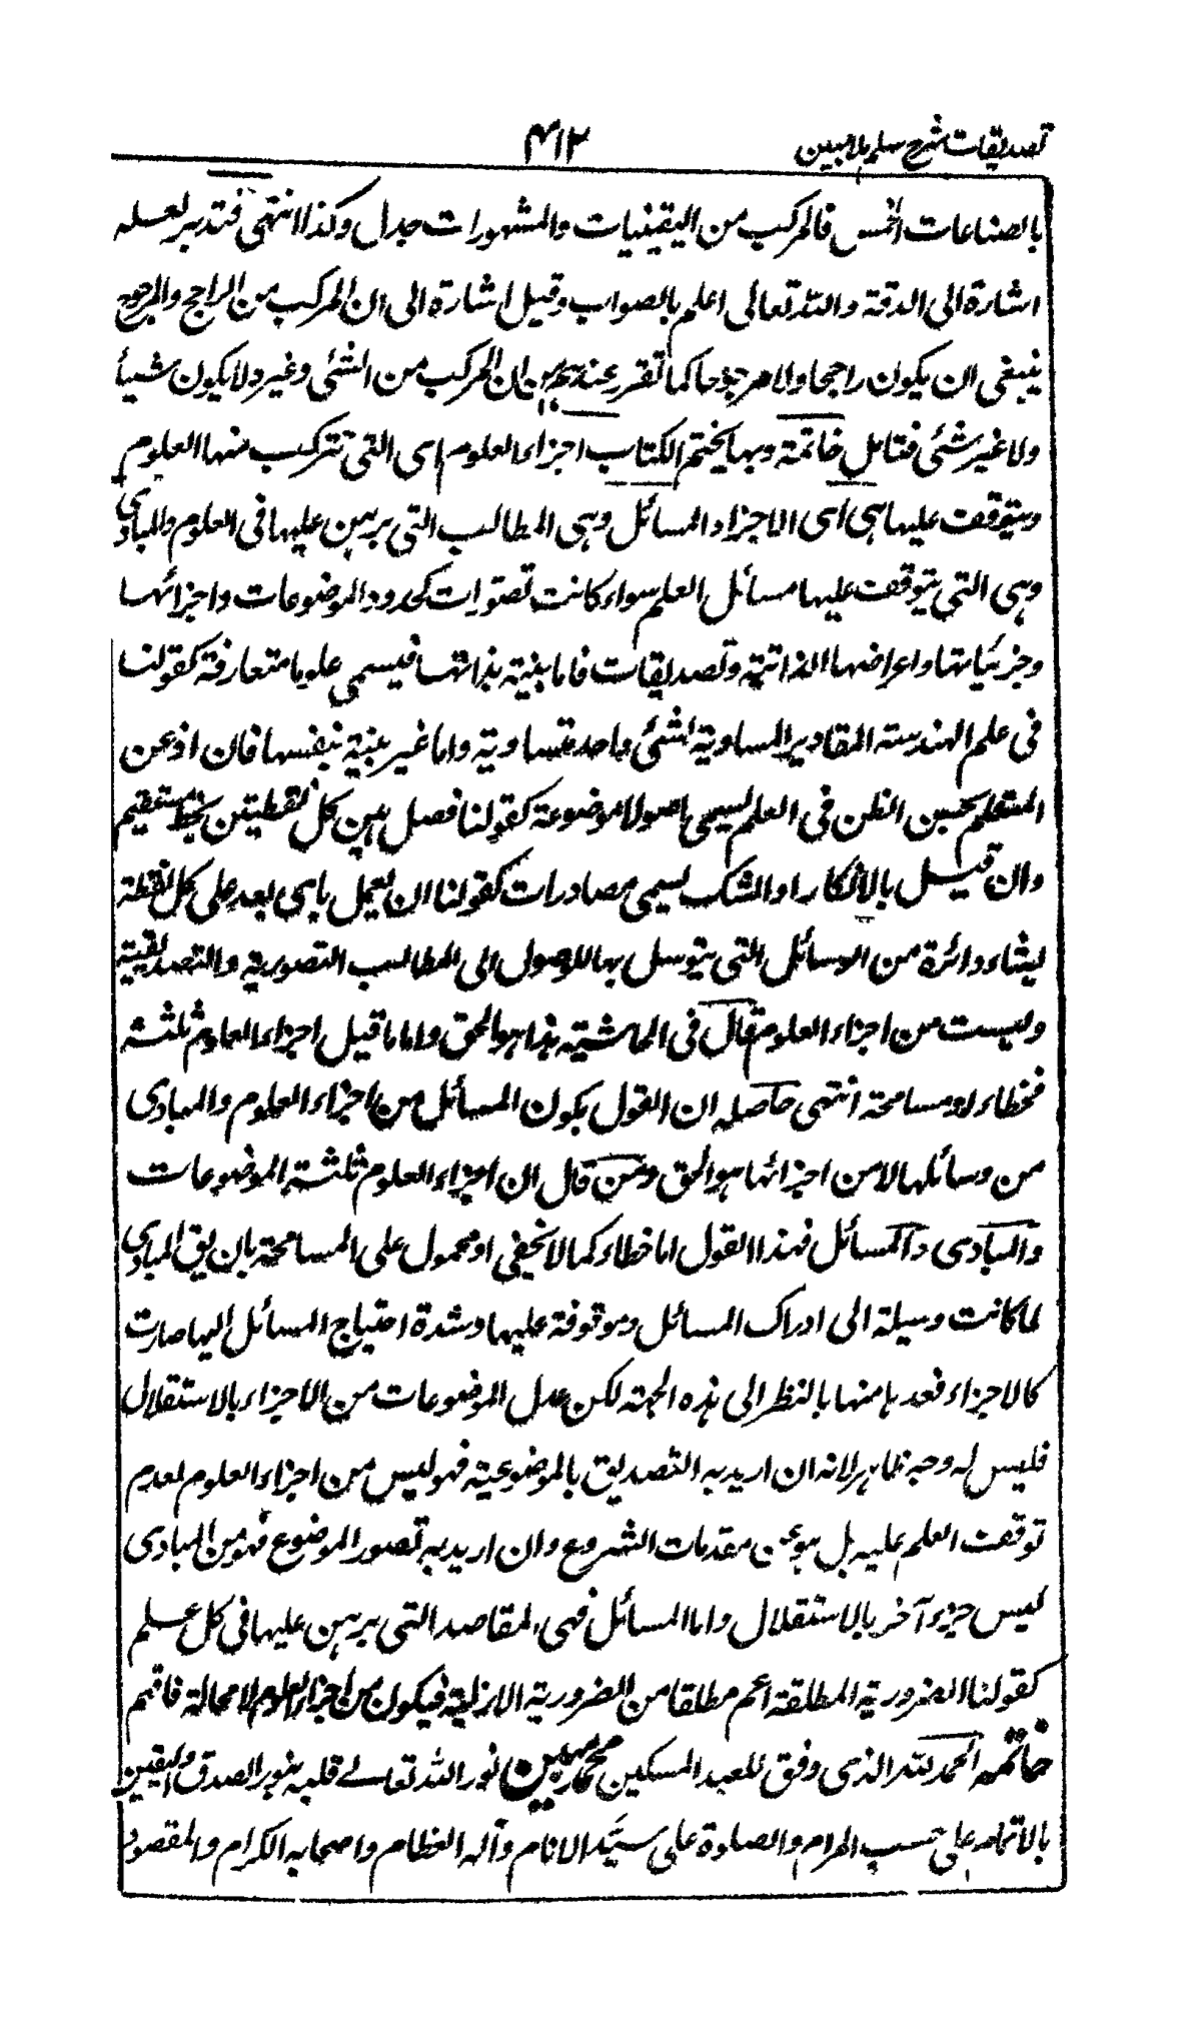 تصديقات شرح سلم ملا مبين
٤١٢
بالصناعات الخمس فالمركب من اليقينيات والمشهورات جدل وكذا انتهى فتدبر لعله
اشارة الى الدقة والله تعالى اعلم بالصواب وقيل اشارة الى ان المركب من الراجح والمرجوح
ينبغى ان يكون راجحا ولا مرجوحا كما تقرر عندهم من ان المركب من الشئ وغيره لا يكون شيأ
ولا غير شئ فتامل خاتمة وبها يختم الكتاب اجزاء العلوم اى التى تتركب منها العلوم
ويتوقف عليها هى اى الاجزاء المسائل وهى المطالب التى يبرهن عليها فى العلوم والمبادى
وهى التى يتوقف عليها مسائل العلم سواء كانت تصورات كحدود الموضوعات واجزائها
وجزئياتها واعراضها الذاتية وتصديقات فاما بينة بذاتها فيسمى علوما متعارفة كقولنا
فى علم الهندسته المقادير المساوية لشئ واحد متساوية واما غير بينة بنفسها فان اذعن
المتعلم بحسن الظن فى العلم يسمى اصولا موضوعة كقولنا فصل بين كل نقطتين بخط مستقيم
وان قيل بالانكار او الشك يسمى مصادرات كقولنا ان يعمل باى بعد على كل نقطة
يشاء دائرة من الوسائل التى يتوسل بها للوصول الى المطالب التصورية والتصديقية
وليست من اجزاء العلوم قال فى الحاشية هذا هو الحق واما ما قيل اجزاء العلوم ثلثة
فخطاء او مسامحة انتهى حاصله ان القول بكون المسائل من اجزاء العلوم والمبادى
من وسائلها لا من اجزائها هو الحق ومن قال ان اجزاء العلوم ثلثة الموضوعات
والمبادى والمسائل فهذا القول اما خطاء كما لا يخفى او محمول على المسامحة بان يق المبادى
لما كانت وسيلة الى ادراك المسائل وموقوفة عليها وشدة احتياج المسائل اليها صارت
كالاجزاء فعدها منها بالنظر الى هذه الجهة لكن عد الموضوعات من الاجزاء بالاستقلال
فليس له وجه ظاهر لانه ان اريد به التصديق بالموضوعية فهو ليس من اجزاء العلوم لعدم
توقف العلم عليه بل هو من مقدمات الشروع وان اريد به تصور الموضوع فهو من المبادى
ليس جزء آخر بالاستقلال واما المسائل فهى المقاصد التى يبرهن عليها فى كل علم
كقولنا الضرورية المطلقة اعم مطلقا من الضرورية الازلية فيكون من اجزاء العلوم لا محالة فافهم
خاتمه الحمد لله الذى وفق للعبد المسكين محمد مبين نور الله تعالى قلبه بنور الصدق واليقين
بالاتمام على حسب المرام والصلوة على سيد الانام وآله العظام واصحابه الكرام والمقصود